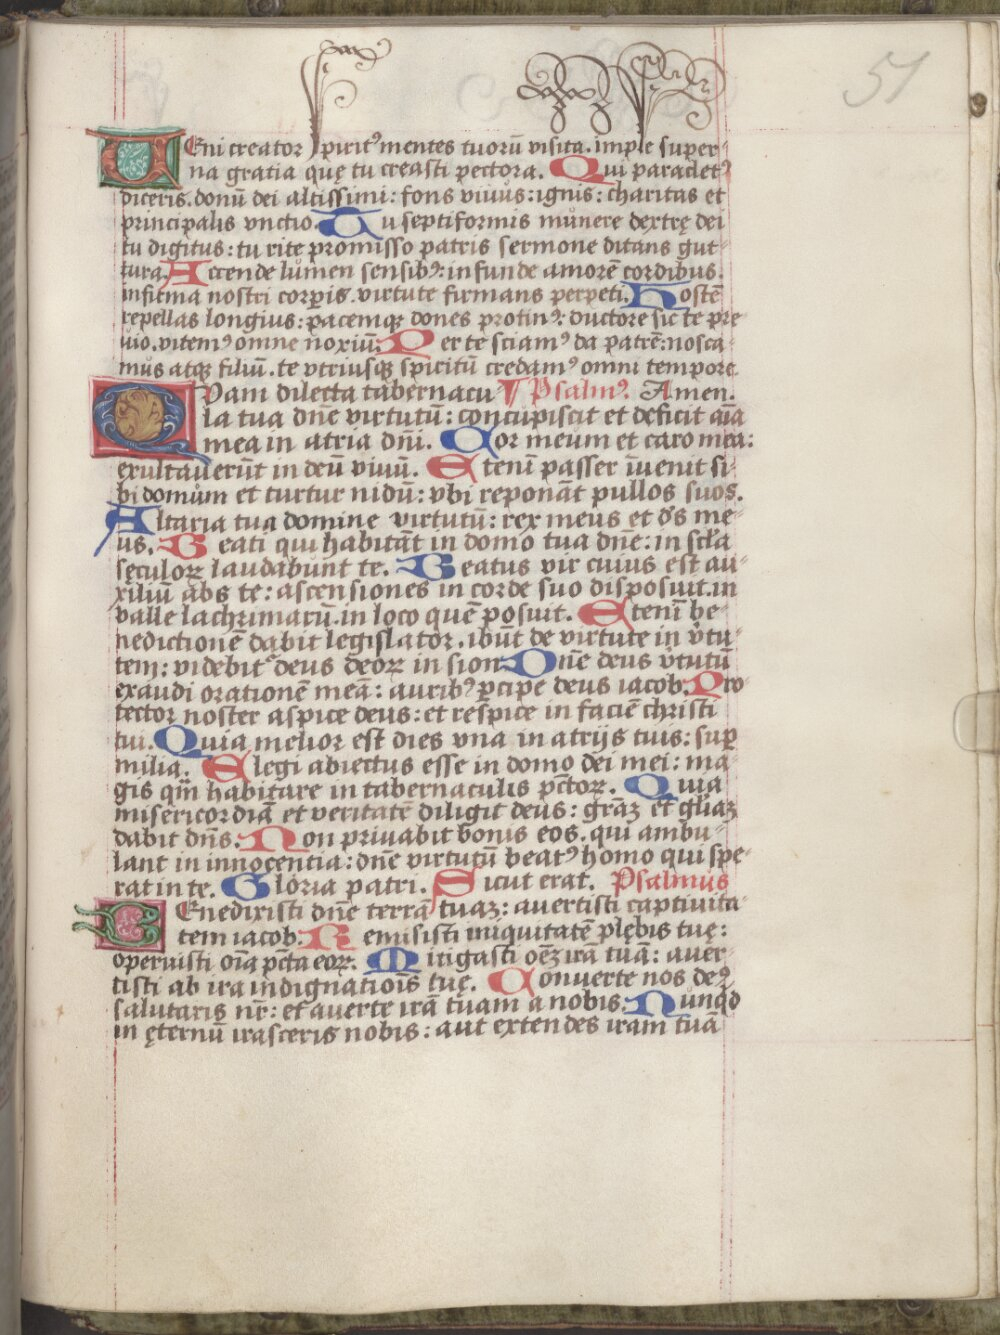 51
VEni creator spiritꝰ mentes tuorū visita. imple super-
na gratia quę tu creasti pectora. Qui paracletꝰ
diceris. donū dei altissimi: fons viuus: ignis: charitas et
principalis vnctio. Tu septiformis munere dextrę dei
tu digitus: tu rite promisso patris sermone ditans gut-
tura. Accende lumen sensibꝰ: infunde amorē cordibus.
infirma nostri corꝑis. virtute firmans perpeti. Hostē
repellas longius: pacemqꝫ dones protinꝰ: ductore sic te pre
uio. vitemꝰ omne noxiū. Per te sciamꝰ da patrē: nosca
mus atqꝫ filiū. te vtriusqꝫ spiritū credamꝰ omni tempore.
QVam dilecta tabernacu ¶ Psalmꝰ. Amen.
la tua dn̄e virtutū: concupiscit et deficit aīa
mea in atria dn̄i. Cor meum et caro mea:
exultauerūt in deū viuū. Etenī passer īuenit si-
bi domum et turtur nidū: vbi reponāt pullos suos.
Altaria tua domine virtutū: rex meus et ds̄ me-
us. Beati qui habitāt in domo tua dn̄e: in scl̄a
sęculoꝝ laudabunt te. Beatus vir cuius est au-
xiliū abs te: ascensiones in corde suo disposuit. in
valle lachrimarū. in loco quē posuit. Etenī be-
nedictionē dabit legislator. ibūt de virtute in v̄tu-
tem: videbit᷑ deus deoꝝ in sion. Dn̄e deus v̄tutū
exaudi orationē meā: auribꝰ ꝑcipe deus iacob. Pro-
tector noster aspice deus: et respice in faciē christi
tui. Quia melior est dies vna in atrijs tuis: suꝑ
milia. Elegi abiectus esse in domo dei mei: ma-
gis qm̄ habitare in tabernaculis pc̄toꝝ. Quia
misericordiā et veritatē diligit deus: grāꝫ et glīaꝫ
dabit dn̄s. Non priuabit bonis eos. qui ambu-
lant in innocentia: dn̄e virtutū beatꝰ homo qui spe-
rat in te. Gloria patri. Sicut erat. Psalmus
BEnedixisti dn̄e terrā tuaꝫ: auertisti captiuita-
tem iacob. Remisisti iniquitatē plębis tuę:
operuisti oīa pctā eoꝝ. Mitigasti oēꝫ irā tuā: auer-
tisti ab ira indignatiōis tuę. Conuerte nos deꝰ
salutaris nr̄: et auerte irā tuam a nobis. Nunqd
in ęternū irasceris nobis: aut extendes iram tuā